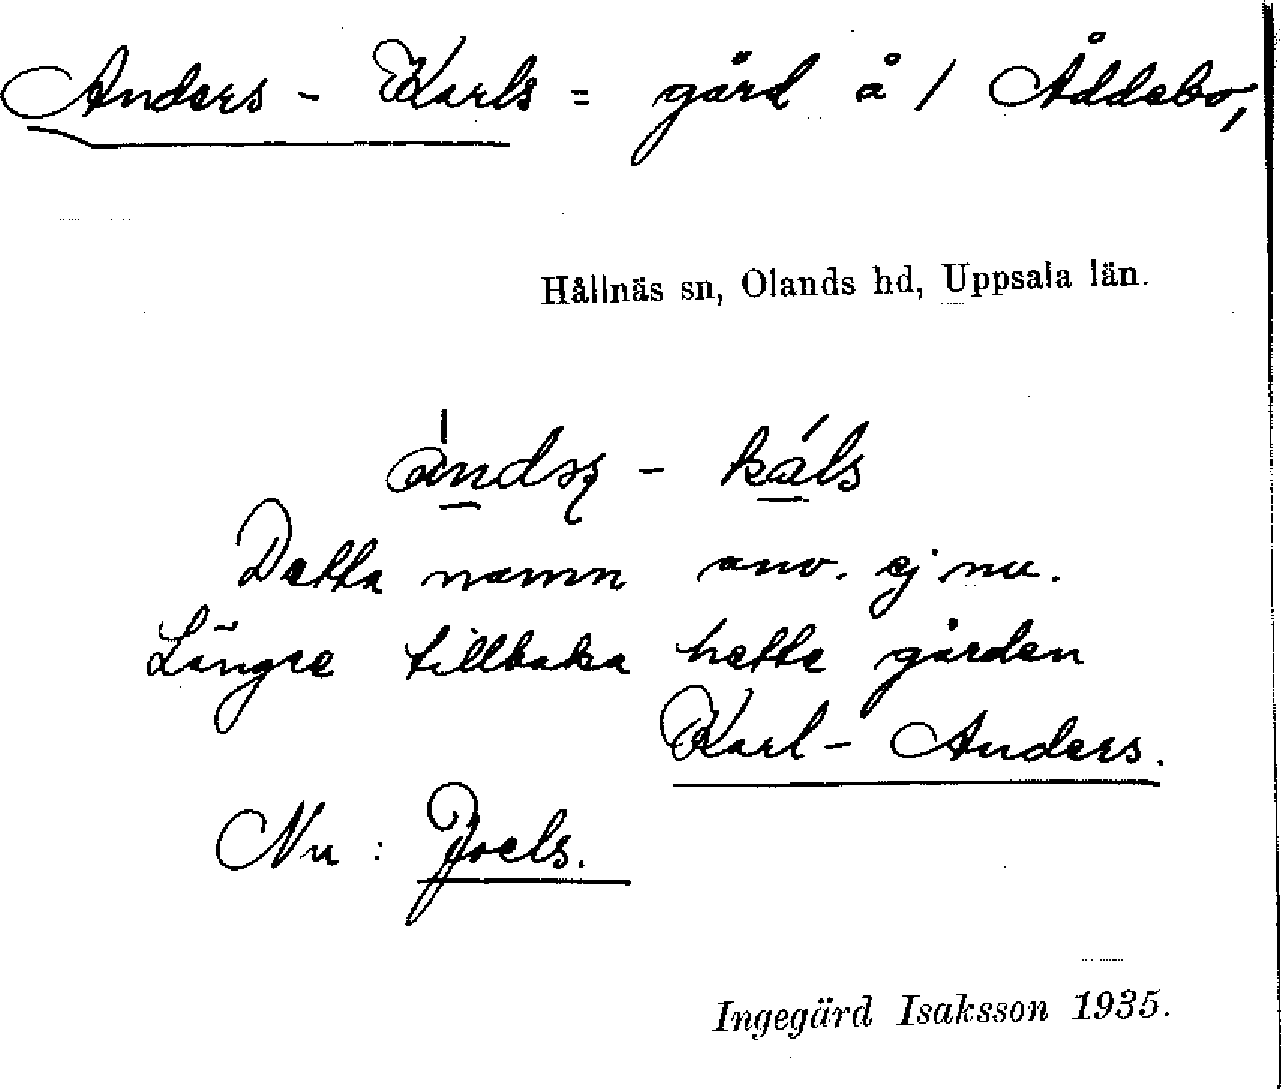 Anders - Karls = gård å / Åddebo,
Hållnäs sn, Olands hd, Uppsala län.
- káls
Detta namn anv. ej nu.
Längre tillbaka hette gården
Karl - Anders.
Nu : Joels.
Ingegärd Isaksson 1935.